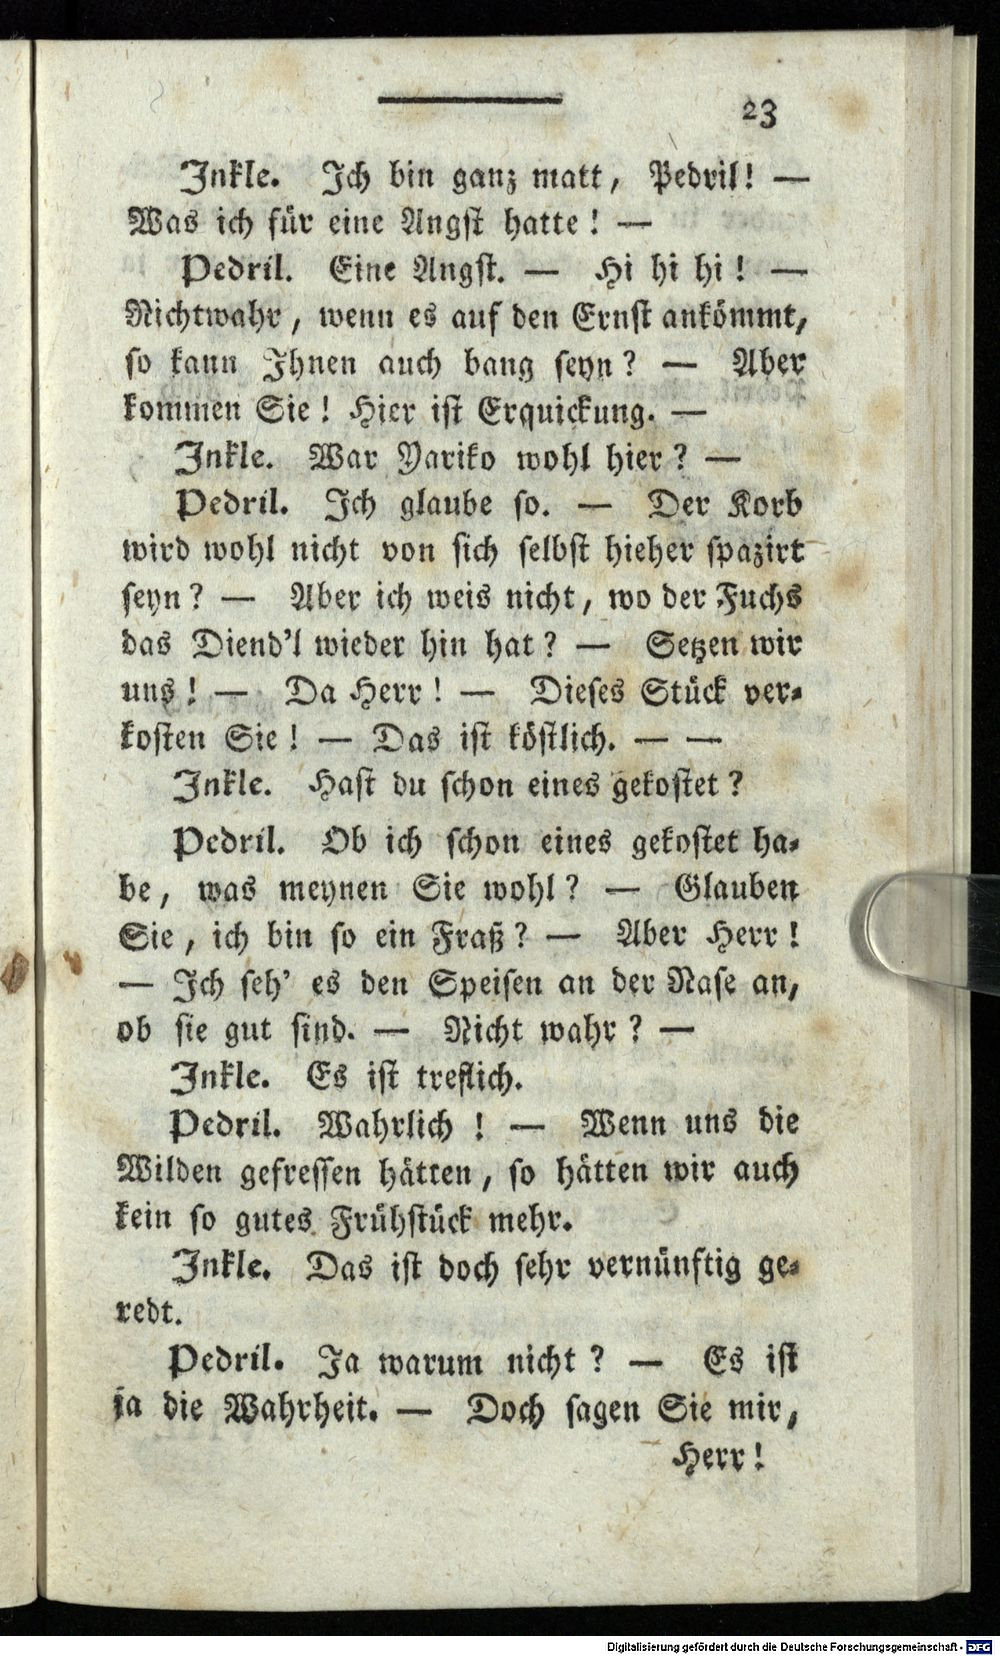 23
Inkle. Ich bin ganz matt, Pedril! —
Was ich für eine Angst hatte! —
Pedril. Eine Angst. — Hi hi hi! —
Nichtwahr, wenn es auf den Ernst ankömmt,
so kann Ihnen auch bang seyn? — Aber
kommen Sie! Hier ist Erquickung. —
Inkle. War Yariko wohl hier? —
Pedril. Ich glaube so. — Der Korb
wird wohl nicht von sich selbst hieher spazirt
seyn? — Aber ich weis nicht, wo der Fuchs
das Diend'l wieder hin hat? — Setzen wir
uns! — Da Herr! — Dieses Stück ver-
kosten Sie! — Das ist köstlich. — —
Inkle. Hast du schon eines gekostet?
Pedril. Ob ich schon eines gekostet ha-
be, was meynen Sie wohl? — Glauben
Sie, ich bin so ein Fraß? — Aber Herr!
— Ich seh' es den Speisen an der Nase an,
ob sie gut sind. — Nicht wahr? —
Inkle. Es ist treflich.
Pedril. Wahrlich! — Wenn uns die
Wilden gefressen hätten, so hätten wir auch
kein so gutes Frühstück mehr.
Inkle. Das ist doch sehr vernünftig ge-
redt.
Pedril. Ja warum nicht? — Es ist
ja die Wahrheit. — Doch sagen Sie mir,
Herr!
Digitalisierung gefördert durch die Deutsche Forschungsgemeinschaft - DFG